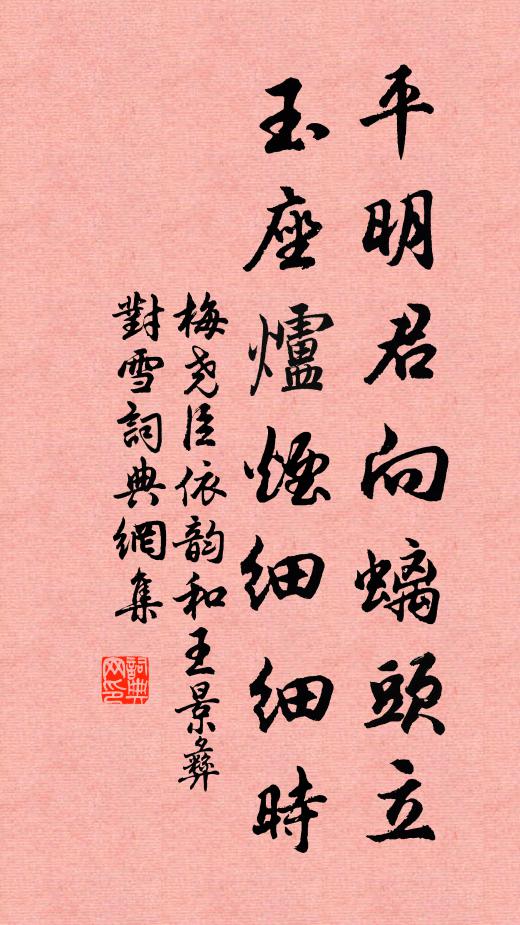 平明君向螭頭立
玉座爐煙細細時
梅尧臣依韵和王景彝
對雪詞典網集
詞典網印